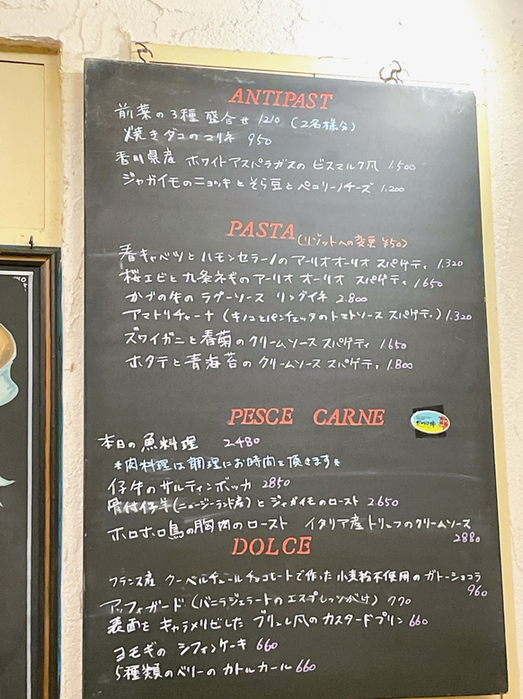 ANTIPAST
前菜の3種盛合せ 1210 (2名様分)
焼きダコのマリネ 950
香川県産 ホワイトアスパラガスの ビスマルク風 1.500
ジャガイモのニョッキと そら豆と ペコリーノチーズ 1.200
PASTA (リゾットへの変更 ¥50)
春キャベツと ハモンセラーノの アーリオオーリオ スパゲティ 1.320
桜エビと九条ネギのアーリオ オーリオ スパゲティ 1.650
牛のラグーソース リングイネ 2.800
アマトリチャーナ (キノコとパンチェッタのトマトソース スパゲティ) 1.320
ズワイガニと春菊のクリームソース スパゲティ 1.650
ホタテと青海苔のクリームソース スパゲティ 1.800
PESCE CARNE
本日の魚料理 2.480
*肉料理は調理にお時間を頂きます*
仔牛のサルティンボッカ 2850
骨付仔羊(ニュージーランド産)とジャガイモのロースト 2.650
ホロホロ鳥の胸肉のロースト イタリア産トリュフのクリームソース
2880
DOLCE
フランス産 クーベルチュールチョコレートで作った小麦粉不使用のガトーショコラ
960
アッフォガード (バニラジェラートのエスプレッソがけ) 770
表面をキャラメリゼした ブリュレ風のカスタードプリン 660
ヨモギの シフォンケーキ 660
5種類のベリーのカトルカール 660